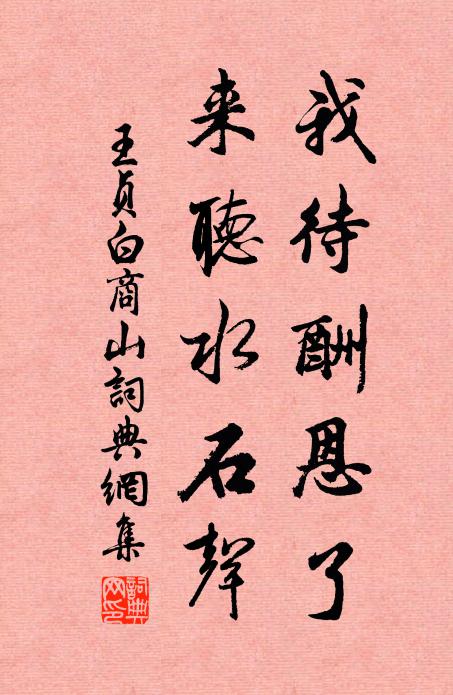 我待酬恩了
来聽水石聲
王貞白商山詞典網集
詞典網印